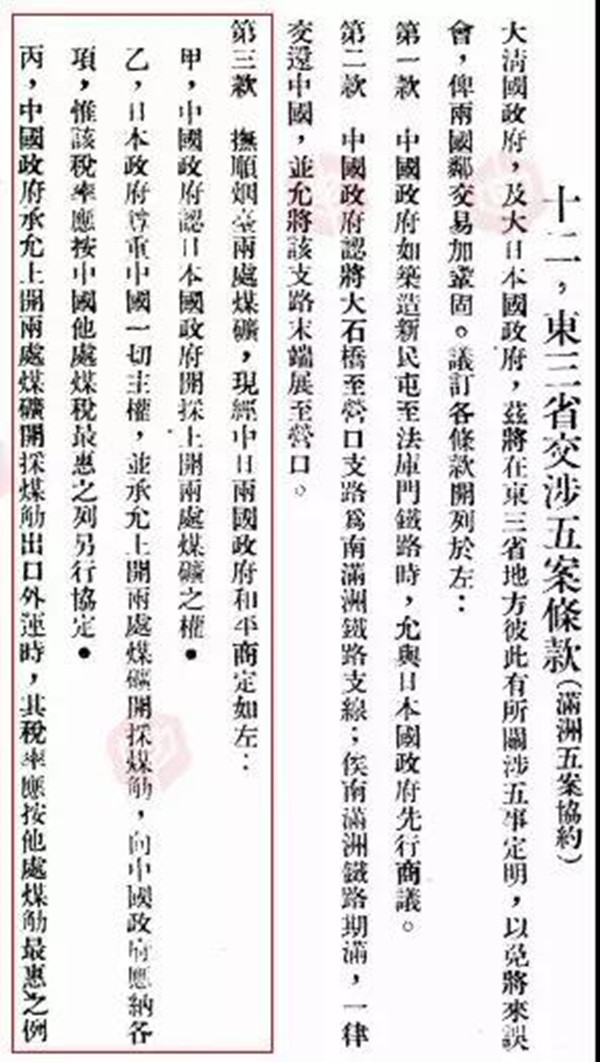 十二，東三省交涉五案條款（滿洲五案協約）
大清國政府，及大日本國政府，茲將在東三省地方彼此有所關涉五事定明，以免將來誤
會，俾兩國鄰交易加鞏固。議訂各條款開列於左：
第一款　中國政府如築造新民屯至法庫門鐵路時，允與日本國政府先行商議。
第二款　中國政府認將大石橋至營口支路爲南滿洲鐵路支線；俟南滿洲鐵路期滿，一律
交還中國，並允將該支路末端展至營口。
第三款　撫順烟臺兩處煤礦，現經中日兩國政府和平商定如左：
甲，中國政府認日本國政府開採上開兩處煤礦之權●
乙，日本政府尊重中國一切主權，並承允上開兩處煤礦開採煤觔，向中國政府應納各
項，惟該稅率應按中國他處煤稅最惠之列另行協定●
丙，中國政府承允上開兩處煤礦開採煤觔出口外運時，其稅率應按他處煤觔最惠之例